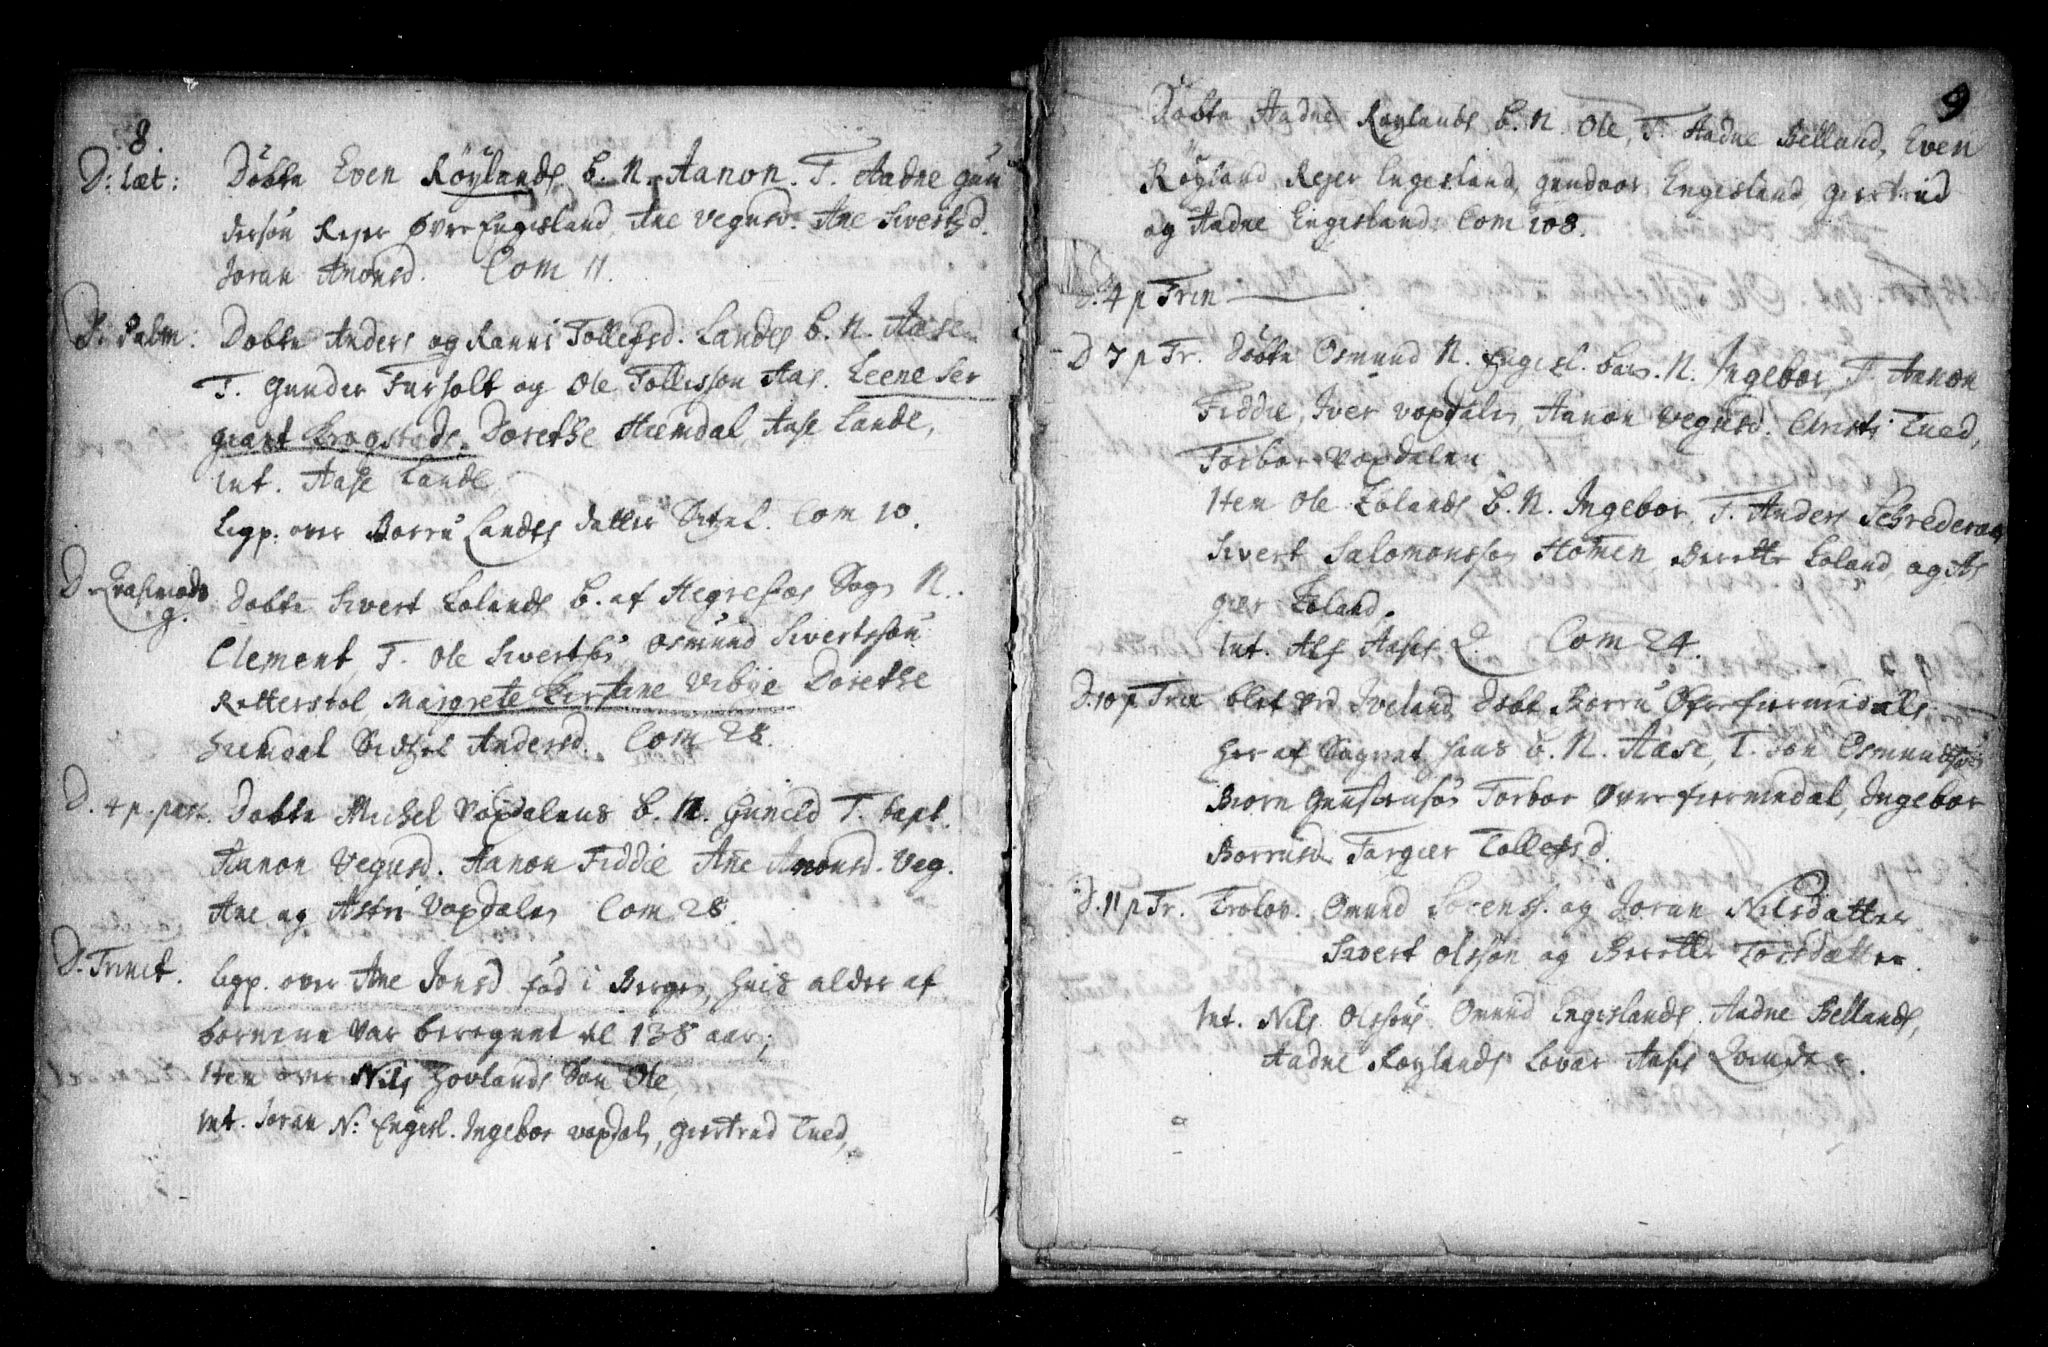 8.
D: Læt: Döbte Even Röylands B. N. Aanon. T. Aadne Gun
dersön Rejer Øvre Engesland, Ane Vegusd. Ane Sivertsd.
Joran Anonsd. Com 11.
D. Palm: Döbte Anders og Ranni Tollefsd. Landes B. N. Aase
T. Gunder Furholt og Ole Tollissøn Aas. Leene Ser
geant Krogstads, Dorethe Hiemdal, Aase Lande,
Int. Aase Lande
Ligp: over Borru Landes datter Sitzel. Com 10.
D. Qvasimodo
g. Döbte Sivert Lølands B. af Hegrefos Sogn N.
Clement, T. Ole Sivertsøn Osmund Sivertssön
Retterstøl, Margrete Kirstine Vibye Dorethe
Hiemdal Sidtzel Andersd. Com 28.
D. 4 p. pasc. Döbte Michel Vopdalens B. N. Guncld T. bapt.
Aanon Vegusd. Aanon Fiddie Ane Anonsd. Veg.
Ane og Astri Vopdalen Com 28.
D. Trinit. Ligp. over Ane Jonsd fød i Bergen, hvis alder af
børnene var beregnet til 138 aar;
Item over Nils Hovlands Søn Ole,
Int. Joran N. Engesl. Ingebor Vopdal, Giertrud Tued,
9
Döbte Aadne Røylands B. N. Ole, T. Aadne Belland, Even
Röyland, Rejer Engesland, Gundvor Engesland Giertrud
og Aadne Engesland. Com 108.
D. 4 p Trin
D 7 p Tr. Döbte Osmund N. Engesl. barn. N. Ingebor, T. Aanon
Fiddie, Iver Vopdalen, Aanon Vegusd. Christi Tued,
Torbor Vopdalen
Item Ole Lölands B. N. Ingebor, T. Anders
Sivert Salomonssøn Homen Berette Løland og As
gier Løland.
Int. Alf Aases Q. Com 24.
D. 10 p Trin blef ved Iveland Döbt Borru Øfrefiermedals
her af Sognet hans B. N. Aase, T. Jon Osmundsøn
Biørn Gunstensøn Torbor Øvrefiermedal, Ingebor
Borrusd. Targier Tollefsd.
D. 11 p Tr. Trolov. Omund Sørens. og Joran Nilsdatter
Sivert Olssøn og Berette Torsdatter.
Int. Nils Olssøns Omund Engeslands Aadne Bellands,
Aadne Røylands Lovar Aases Qvinder.